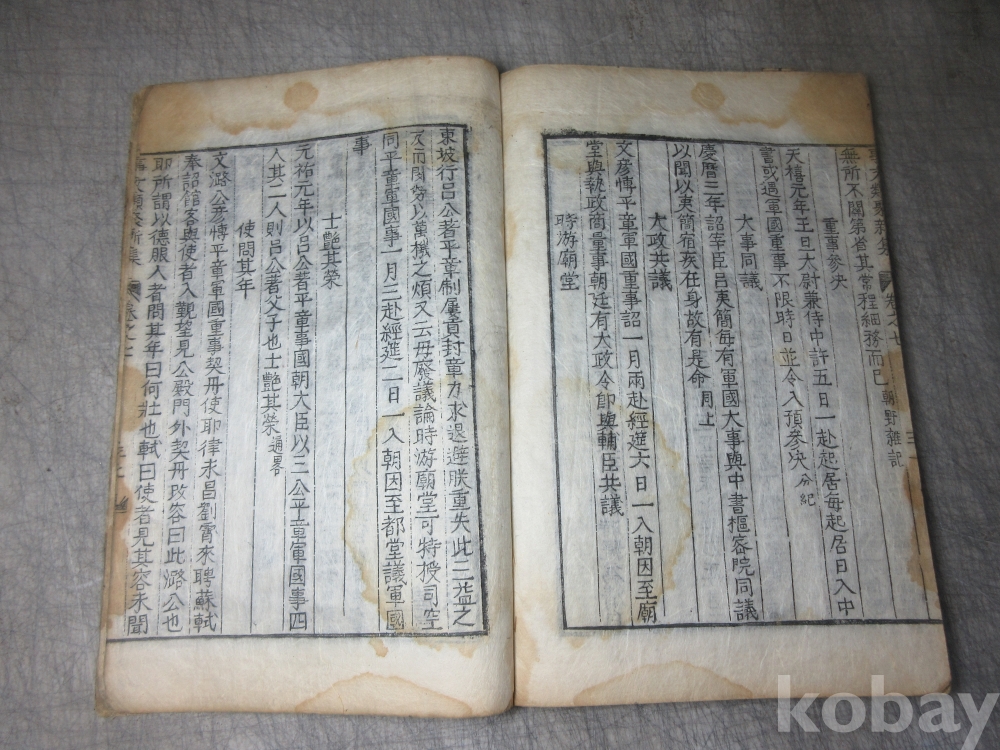 無所不關第省其常程細務而已 朝野雜記
重事參決
天禧元年王旦太尉兼侍中許五日一赴起居每起居日入中
書或遇軍國重事不限時日並令入預參决 分紀
大事同議
慶曆三年詔宰臣呂夷簡每有軍國大事與中書樞密院同議
以聞以夷簡宿疾在身故有是命 同上
大政共議
文彥博平章軍國重事詔一月兩赴經筵六日一入朝因至廟
堂與執政簡量事朝廷有大政令即與輔臣共議
時游廟堂
東坡行呂公著平章制屢貢封章力求退避朕重失此三益之
友而閔勞以萬機之煩又云毋廢議論時游廟堂可特授司空
同平章軍國事一月三赴經筵二日一入朝因至都堂議軍國
事
士艶其榮
元祐元年以呂公著平章事國朝大臣以三公平章軍國事四
人其二人則呂公著父子也士艶其榮 通畧
使問其年
文潞公彥博平章軍國重事契丹使耶律永昌劉霄來聘蘇軾
奉詔館客與使者入覲望見公殿門外契丹改容曰此潞公也
耶所謂以德服人者問其年曰何壯也軾曰使者見其容未聞
卷之七
kobay